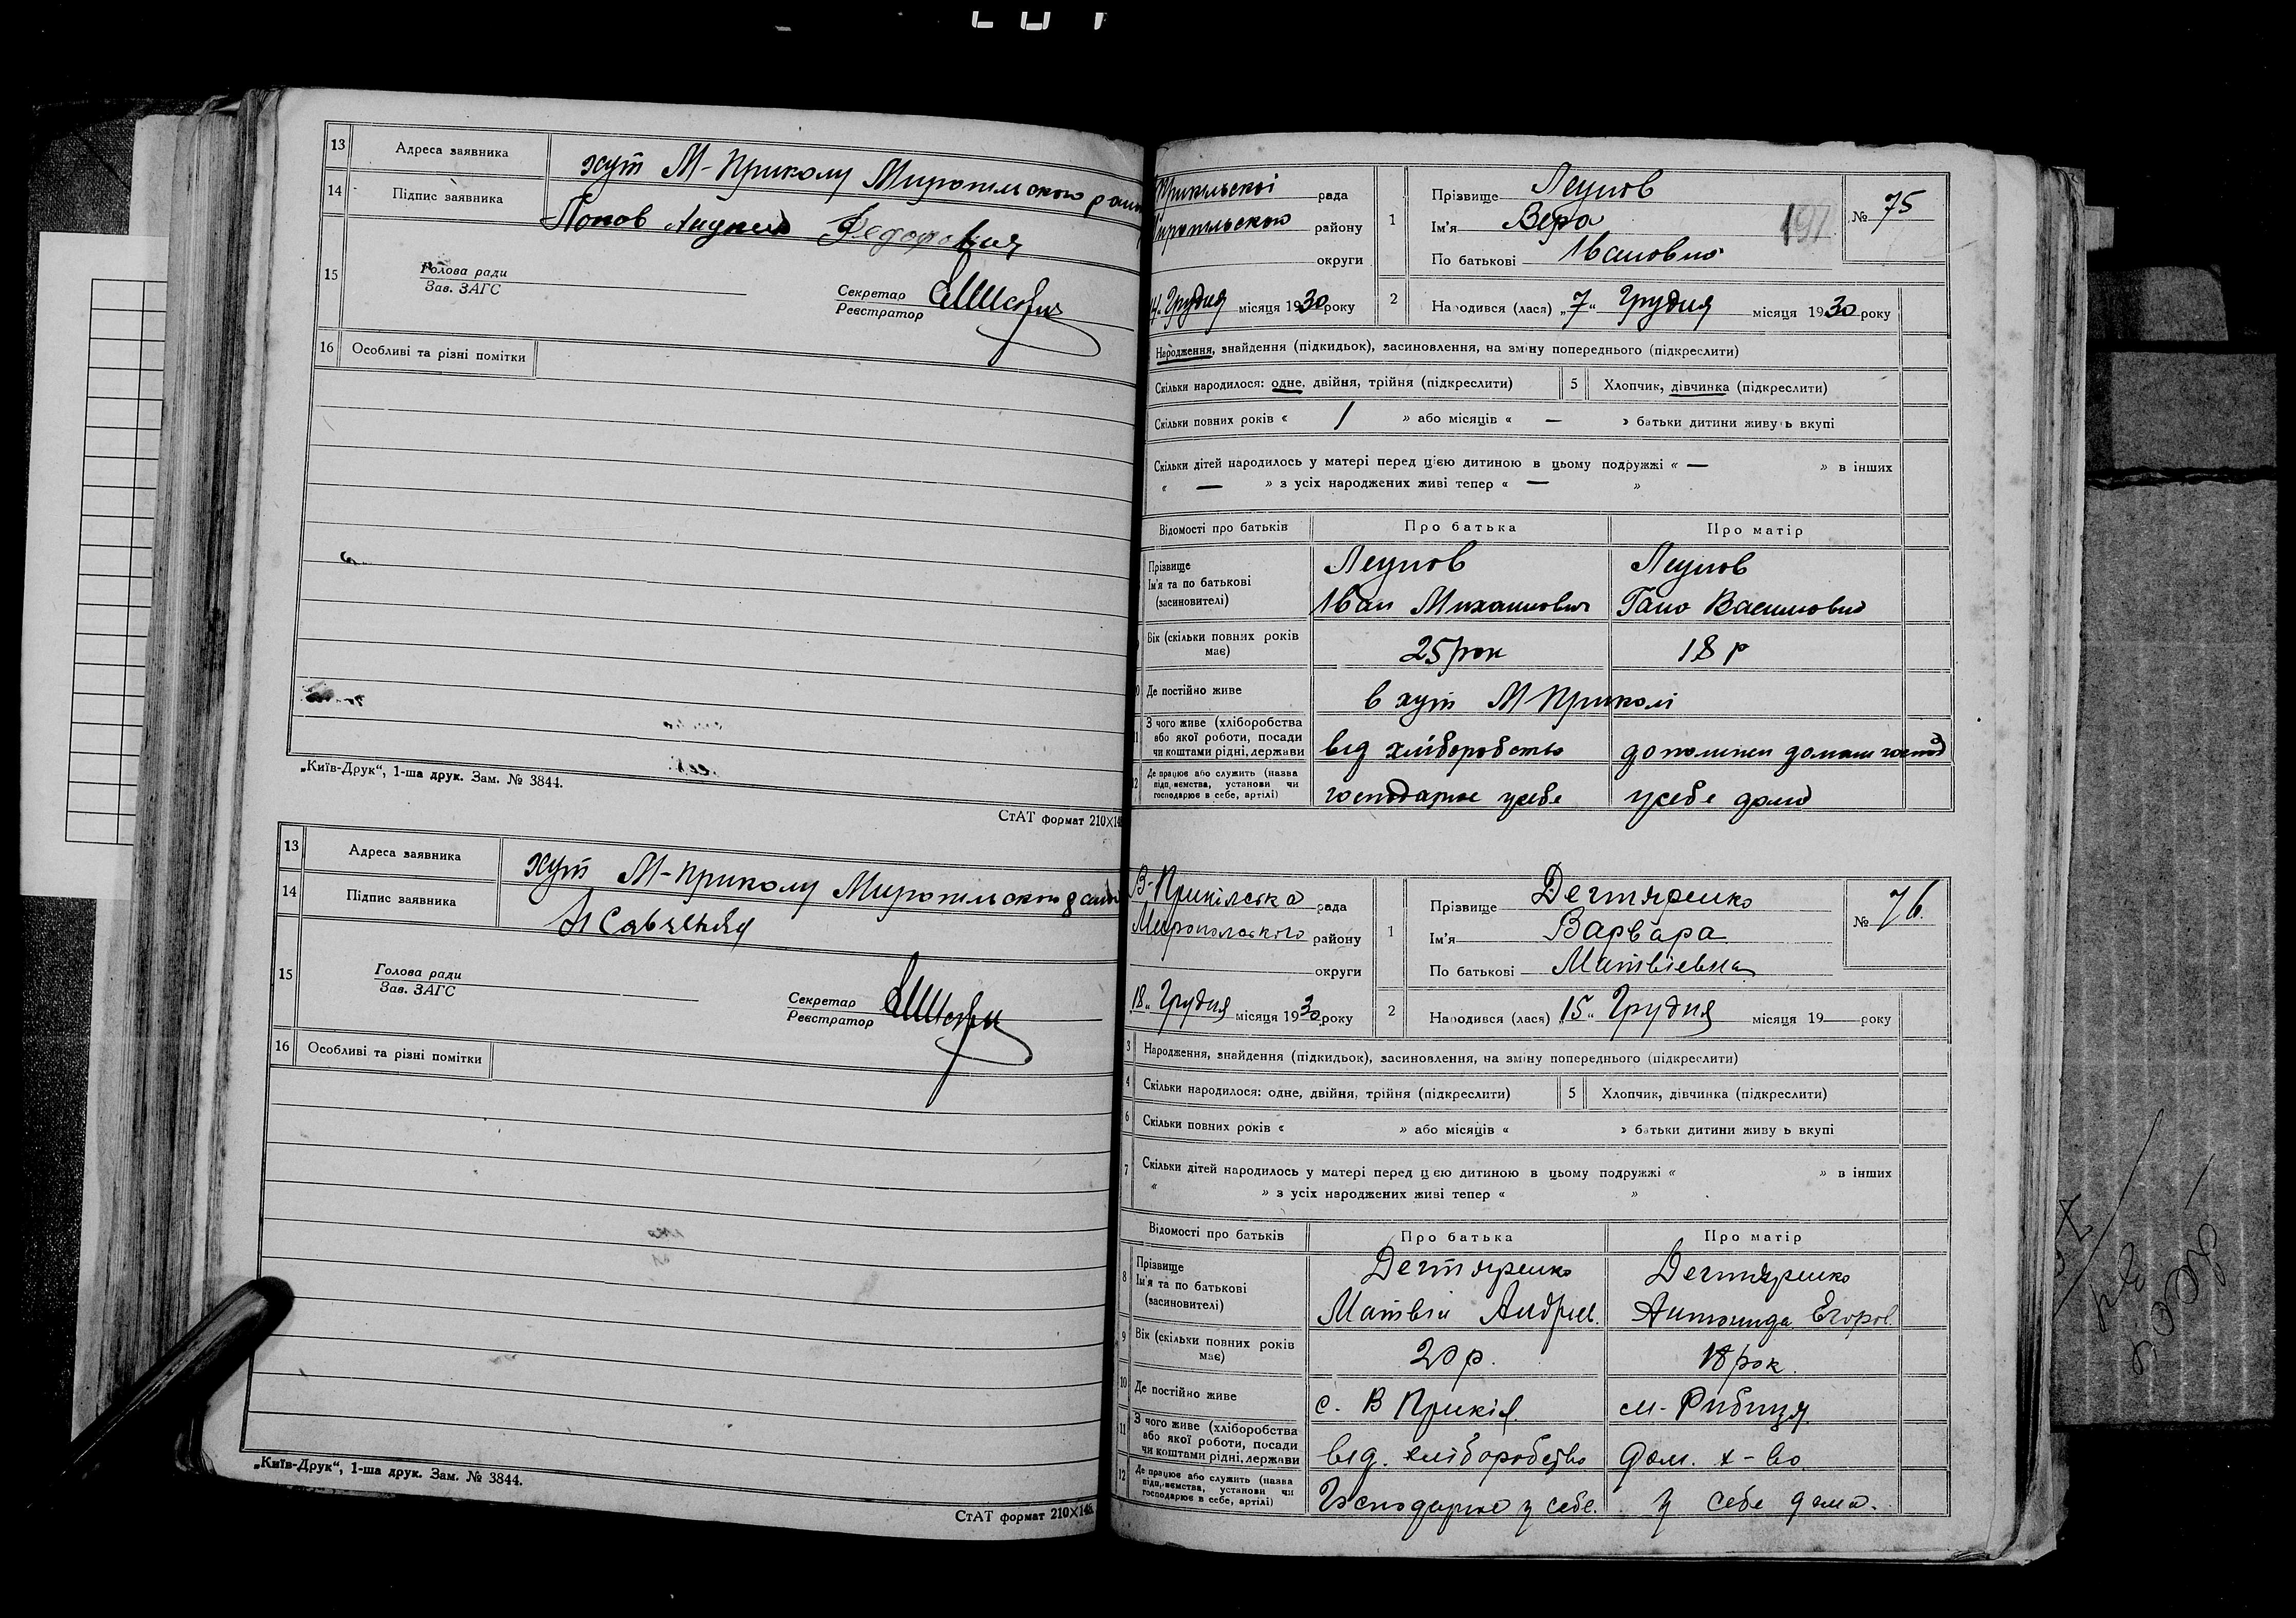 13 Адреса заявника хут М-Приколу Миропільського
14 Підпис заявника Попов Федорович
15 Голова ради
Зав. ЗАГС
Секретар
Реєстратор
16 Особливі та різні помітки
„Київ-Друк“, 1-ша друк. Зам. № 3844.
СтАТ формат 210×148
13 Адреса заявника хут М-Приколу Миропільського
14 Підпис заявника
15 Голова ради
Зав. ЗАГС
Секретар
Реєстратор
16 Особливі та різні помітки
„Київ-Друк“, 1-ша друк. Зам. № 3844.
СтАТ формат 210×148.
рада
району
округи
Грудня місяця 1930 року
1 Прізвище Леунов
Ім'я Вера
По батькові Івановна
191
№ 75
2 Народився (лася) „7“ Грудня місяця 1930 року
Народження, знайдення (підкидьок), засиновлення, на зміну попереднього (підкреслити)
Скільки народилося: одне, двійня, трійня (підкреслити) 5 Хлопчик, дівчинка (підкреслити)
Скільки повних років « / » або місяців « — » батьки дитини живуть вкупі
Скільки дітей народилось у матері перед цією дитиною в цьому подружжі « — » в інших
« — » з усіх народжених живі тепер « — »
Відомості про батьків Про батька Про матір
Прізвище Леунов Леунов
Ім'я та по батькові
(засиновителі) Іван Михайлович Гана Василовна
Вік (скільки повних років має) 25 рок 18 р
Де постійно живе в хут М Приколі
З чого живе (хліборобства
або якої роботи, посади
чи коштами рідні, держави від хліборобства
Де працює або служить (назва
підприємства, установи чи
господарює в себе, артілі) господарює усебе усебе дома
В-Прикілська рада
Миропольского району
округи
18 „ Грудня місяця 1930 року
1 Прізвище Дегтяренко
Ім'я Варвара
По батькові Матвіевна
№ 76.
2 Народився (лася) „15„ Грудня місяця 19 року
3 Народження, знайдення (підкидьок), засиновлення, на зміну попереднього (підкреслити)
4 Скільки народилося: одне, двійня, трійня (підкреслити) 5 Хлопчик, дівчинка (підкреслити)
6 Скільки повних років « » або місяців « » батьки дитини живуть вкупі
7 Скільки дітей народилось у матері перед цією дитиною в цьому подружжі « » в інших
« » з усіх народжених живі тепер « »
Відомості про батьків Про батька Про матір
8 Прізвище Дегтяренко Дегтяренко
Ім'я та по батькові
(засиновителі) Матвій Андрієв. Антонида Егоров.
9 Вік (скільки повних років має) 20 р. 18 рок.
10 Де постійно живе с. В Прикіл. м. Рибиця.
11 З чого живе (хліборобства
або якої роботи, посади
чи коштами рідні, держави від. хліборобство дом. х-во
12 Де працює або служить (назва
підприємства, установи чи
господарює в себе, артілі) Господарює у себе. у себе дома.